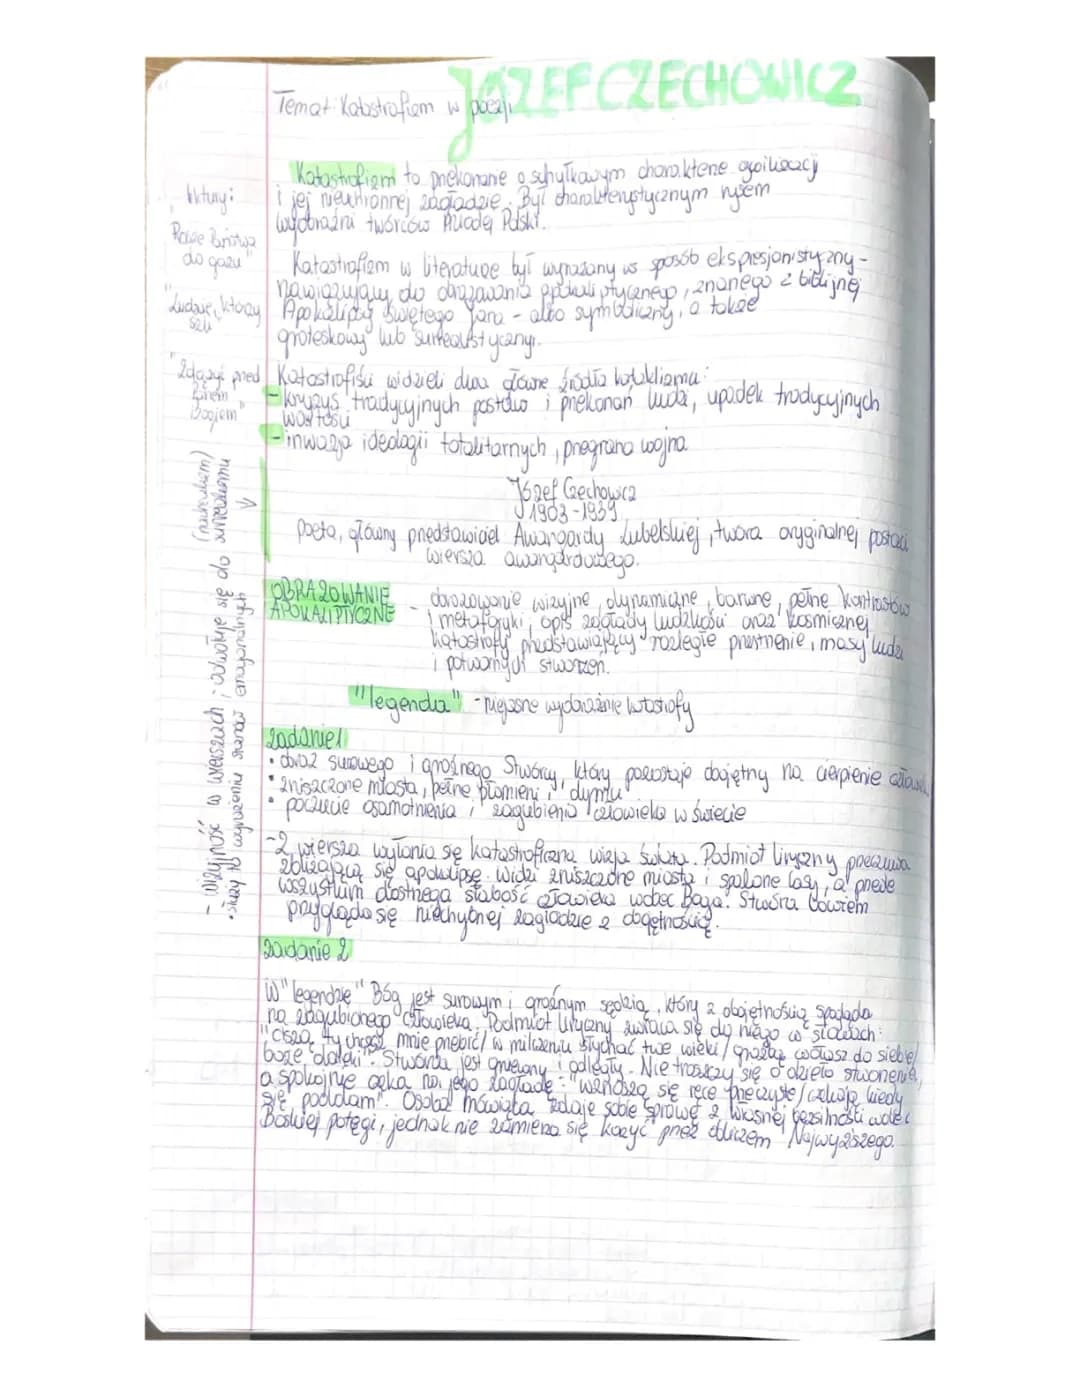 JÓZEF CZECHOWICZ
Temat: Katastrofizm w poezji
Katastrofizm to przekonanie o schyłkowym charakterze cywilizacji
i jej nieuchronnej zagładzie. Był charakterystycznym rysem
wyobraźni twórców Młodej Polski.
Katastrofizm w literaturze był wyrażany w sposób ekspresjonistyczny -
nawiązujący do obrazowania apokaliptycznego, znanego z biblijnej
Apokalipsy świętego Jana - albo symboliczny, a także
groteskowy lub surrealistyczny.
Katastrofiści widzieli dwa główne źródła kataklizmu:
- kryzys tradycyjnych postaw i przekonań ludzi, upadek tradycyjnych
wartości
- inwazja ideologii totalitarnych, przegrana wojna.
Józef Czechowicz
1903-1939
Poeta, główny przedstawiciel Awangardy Lubelskiej, twórca oryginalnej postaci
wiersza awangardowego.
OBRAZOWANIE
APOKALIPTYCZNE
- obrazowanie wizyjne, dynamiczne, barwne, pełne kontrastów
i metaforyki, opis zagłady ludzkości oraz kosmicznej
katastrofy przedstawiający rozległe przestrzenie, masy ludzi
i potwornych stworzeń.
"legenda" - niejasne wyobrażenie katastrofy
zadanie 1
• obraz surowego i groźnego Stwórcy, który pozostaje obojętny na cierpienie człowieka
• zniszczone miasta, pełne płomieni, dymu
• poczucie osamotnienia, zagubienia człowieka w świecie
- Z wiersza wyłania się katastroficzna wizja świata. Podmiot liryczny przeczuwa
zbliżającą się apokalipsę. Widzi zniszczone miasta i spalone lasy, a przede
wszystkim dostrzega słabość człowieka wobec Boga. Stwórca bowiem
przygląda się niechybnej zagładzie z obojętnością.
zadanie 2
W "legendzie" Bóg jest surowym i groźnym sędzią, który z obojętnością spogląda
na zagubionego człowieka. Podmiot liryczny zwraca się do niego w słowach:
"cisza ty chcesz mnie przebić / w milczeniu słychać twe wieki / wołasz do siebie /
boże daleki". Stwórca jest gniewny i odległy. Nie troszczy się o dzieło stworzenia,
a spokojnie czeka na jego zagładę: "wznoszą się ręce przeczyste / czekają kiedy
się poddam". Osoba mówiąca zdaje sobie sprawę z własnej bezsilności wobec
Boskiej potęgi, jednak nie zamierza się korzyć przed obliczem Najwyższego.
"Ludzie, którzy
szli"
"Zdążyć przed
Panem
Bogiem"
- wizyjność w wierszach; odwołuje się do
• służy to wyrażeniu stanów emocjonalnych